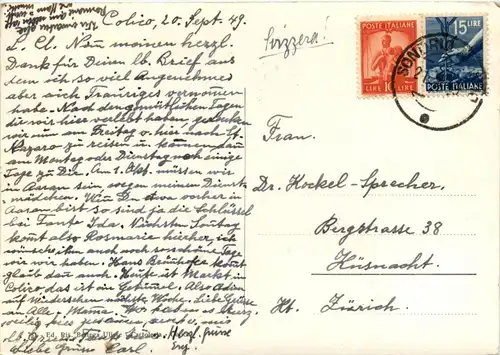 Colico, 20. Sept. 49.
L. Cl. Nun meinen herzl.
Dank für Deinen lb. Brief aus
dem ich so viel Angenehmes
aber auch Trauriges vernommen
habe. Nach den gemütlichen Tagen
die wir hier verlebt haben, gedenken
wir nun am Freitag v. hier nach St.
Nazaro zu reisen u. kommen dann
am Montag oder Dienstag noch einige
Tage zu Dir. Am 1. Okt. müssen wir
in Aarau sein wegen meinem Dienst
mädchen. Wenn Du etwa vorher in
Aarau bist so sind ja die Schlüssel
bei Tante Ida. Nächsten Sonntag
kommt also Rosmarie hierher, ich
wünsche ihm auch noch so schöne Tage
wie wir haben. Hans
glaub dann auch. Heute ist Markt in
Colico, das ist ein Also Adio
auf Wiedersehen nächste Woche. Liebe Grüsse
an Alle, Mamma. Wir haben es
hier
Herzl. Grüsse
Liebe Grüsse Carl.
Svizzera!
POSTE ITALIANE
LIRE 10
15 LIRE
POSTE ITALIANE
SONDRIO
Frau.
Dr. Hockel-Sprecher,
Bergstrasse 38
Küsnacht.
Kt. Zürich.